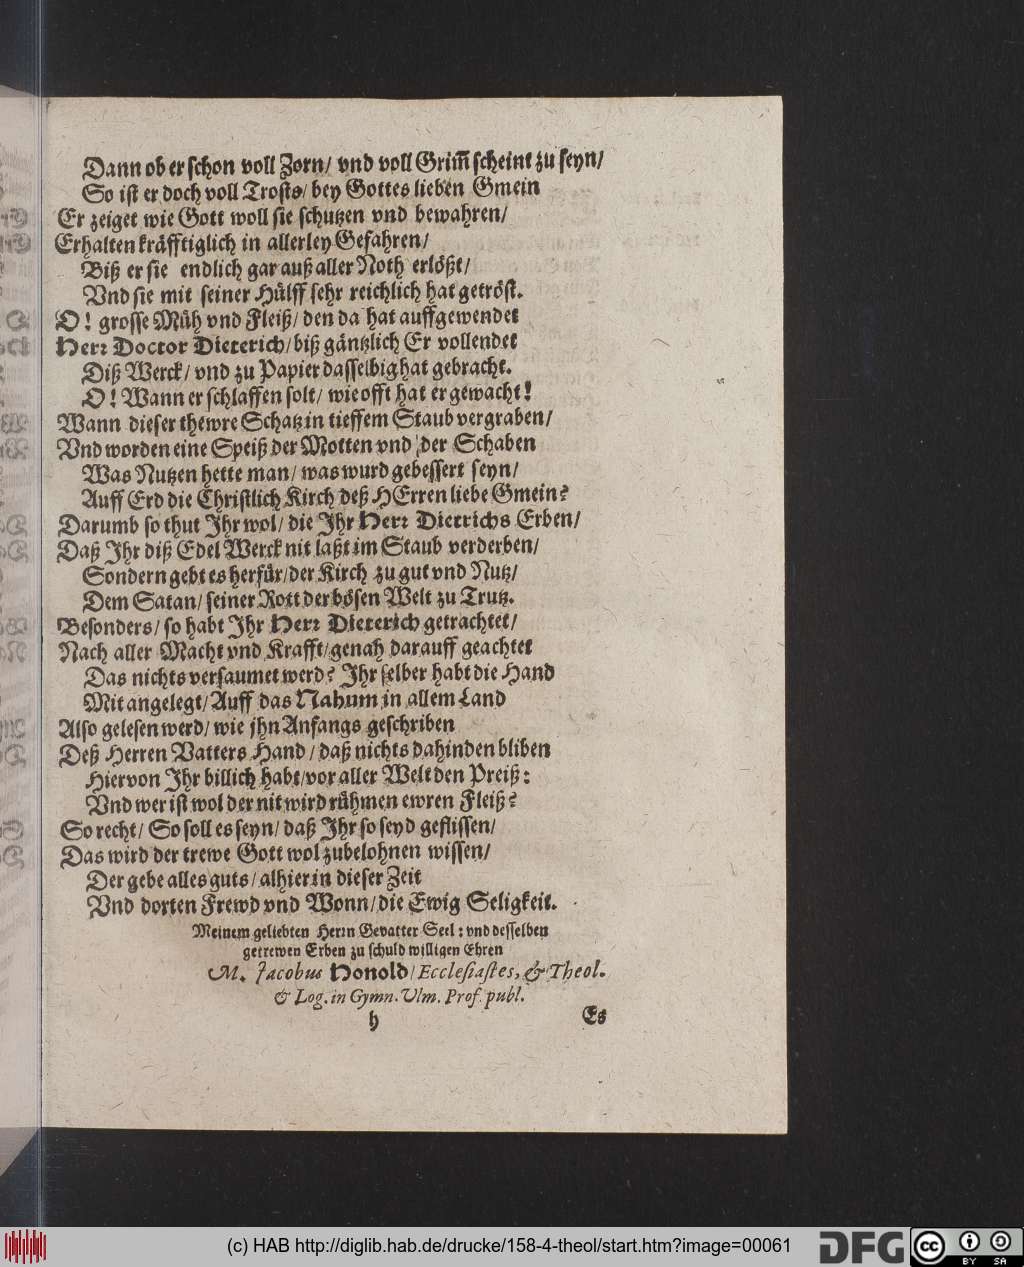 Dann ob er schon voll Zorn/ vnd voll Grim̃ scheint zu seyn/
So ist er doch voll Trosts/ bey Gottes lieben Gmein
Er zeiget wie Gott woll sie schutzen vnd bewahren/
Erhalten kräfftiglich in allerley Gefahren/
Biß er sie endlich gar auß aller Noth erlößt/
Vnd sie mit seiner Hülff sehr reichlich hat getröst.
O! grosse Müh vnd Fleiß/ den da hat auffgewendet
Herr Doctor Dieterich/ biß gäntzlich Er vollendet
Diß Werck/ vnd zu Papier dasselbig hat gebracht.
O! Wann er schlaffen solt/ wie offt hat er gewacht!
Wann dieser thewre Schatz in tieffem Staub vergraben/
Vnd worden eine Speiß der Motten vnd der Schaben
Was Nutzen hette man/ was wurd gebessert seyn/
Auff Erd die Christlich Kirch deß HErren liebe Gmein?
Darumb so thut Ihr wol/ die Ihr Herr Dietrichs Erben/
Daß Ihr diß Edel Werck nit laßt im Staub verderben/
Sondern gebt es herfür/ der Kirch zu gut vnd Nutz/
Dem Satan/ seiner Rott der bösen Welt zu Trutz.
Besonders/ so habt Ihr Herr Dieterich getrachtet/
Nach aller Macht vnd Krafft/ genah darauff geachtet
Das nichts versaumet werd? Ihr selber habt die Hand
Mit angelegt/ Auff das Nahum in allem Land
Also gelesen werd/ wie jhn Anfangs geschriben
Deß Herren Vatters Hand/ daß nichts dahinden bliben
Hiervon Ihr billich habt/ vor aller Welt den Preiß:
Vnd wer ist wol der nit wird rühmen ewren Fleiß?
So recht/ So soll es seyn/ daß Ihr so seyd geflissen/
Das wird der trewe Gott wol zubelohnen wissen/
Der gebe alles guts/ alhier in dieser Zeit
Vnd dorten Frewd vnd Wonn/ die Ewig Seligkeit.
Meinem geliebten Herrn Gevatter Seel: vnd desselben
getrewen Erben zu schuld willigen Ehren
M. Jacobus Honold/ Ecclesiastes, & Theol.
& Log. in Gymn. Vlm. Prof. publ.
h Es
(c) HAB http://diglib.hab.de/drucke/158-4-theol/start.htm?image=00061
DFG
cc BY SA